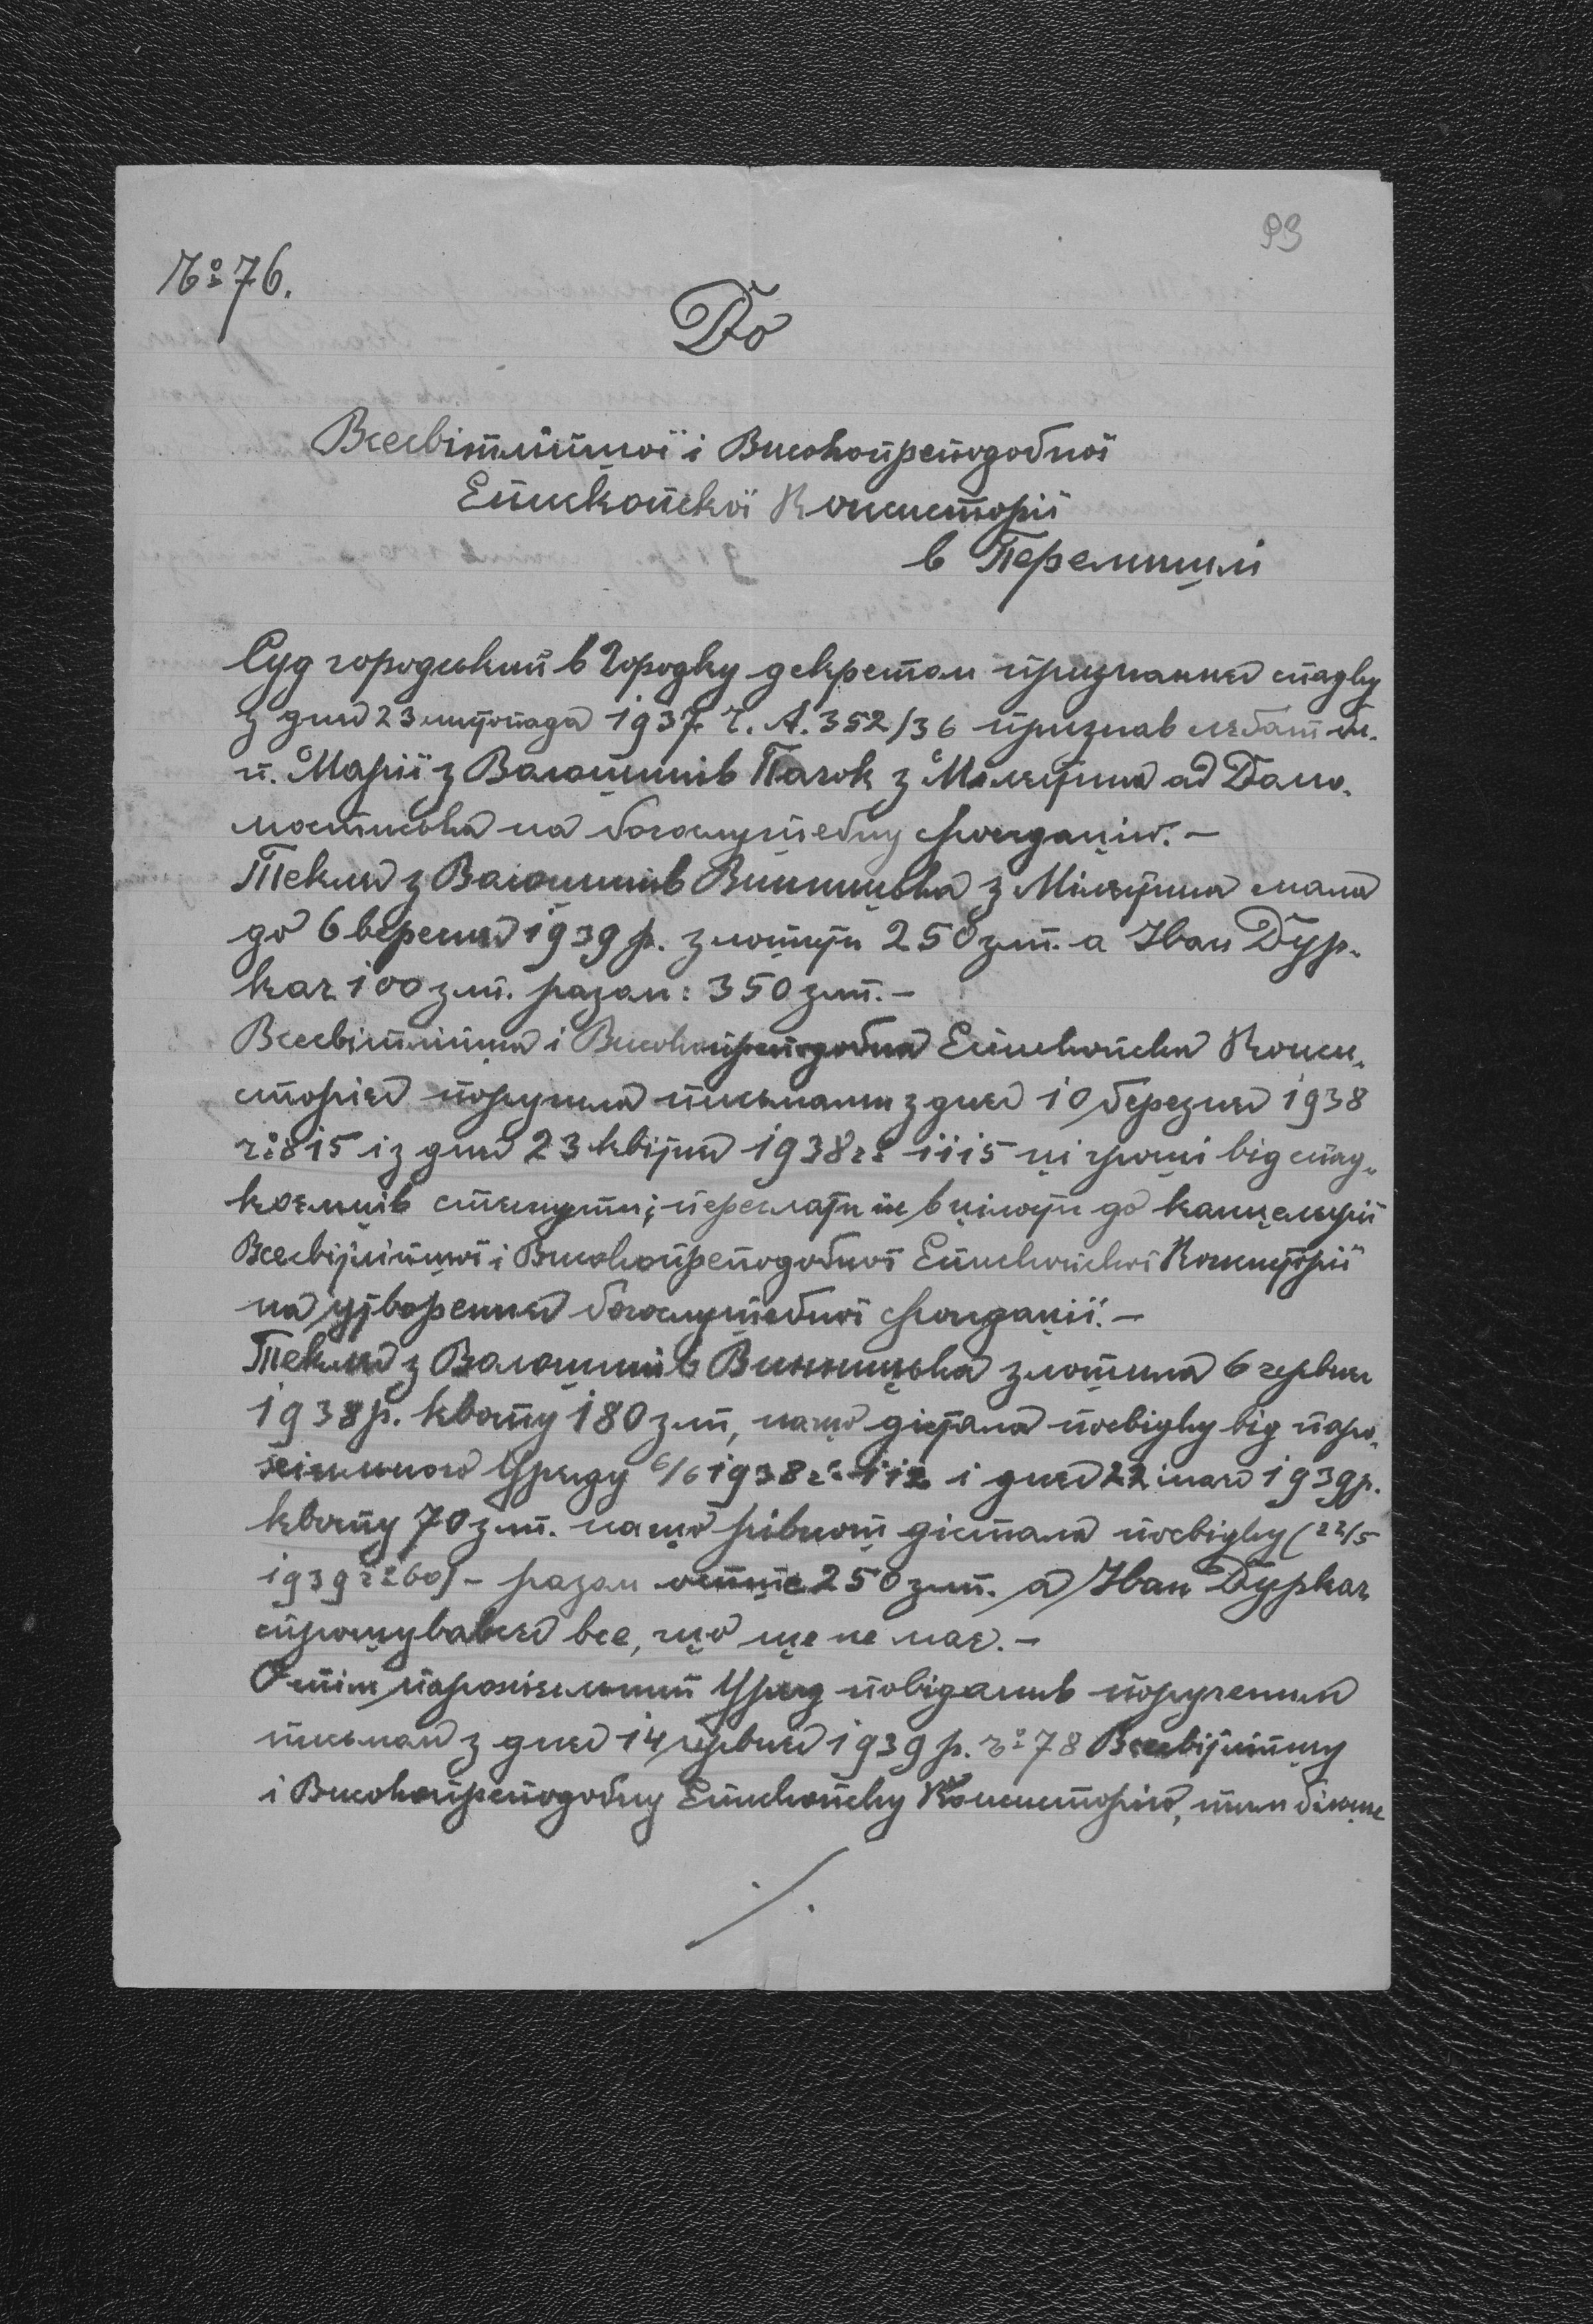 99
Ч° 76.
До
Всесвітліщої і Високопреподобної
Епископскої Консисторії
в Перемишлі
Суд городський в Городку декретом признання спадку
з дня 23 листопада 1937 ч. А. 352/36 признав лєґат бл.
п. Марії з Волошинів Пачок з Мілятина ад Доло-
мостиська на богослужебну фондацію. –
Текля з Волошинів Винницька з Мілятина мала
до 6 вересня 1939 р. зложити 250 зол. а Іван Дур-
кач 100 зол. разом: 350 зол. –
Всесвітліща і Високопреподобна Епископска Конси-
сторія поручила письмами з дня 10 березня 1938
ч° 815 і з дня 23 квітня 1938 ч° 1115 ці гроші від спад-
коємців стягнути і переслати їх в цілости до канцелярії
Всесвітліщої і Високопреподобної Епископскої Консисторії
на утворення богослужебної фондації. –
Текля з Волошинів Винницька зложила 6 червня
1938 р. квоту 180 зол, на що дістала посвідку від паро-
хіяльного Уряду 6/6 1938 ч° 112 і дня 22 мая 1939 р.
квоту 70 зол. на що рівнож дістала посвідку (22/5
1939 ч° 60) – разом 250 зол. а Іван Дуркач
спроцувався все, що ще не має. –
О тім парохіяльний Уряд повідомив порученим
письмом з дня 14 червня 1939 р. ч° 78 Всесвітліщу
і Високопреподобну Епископску Консисторію, тим більше
./.